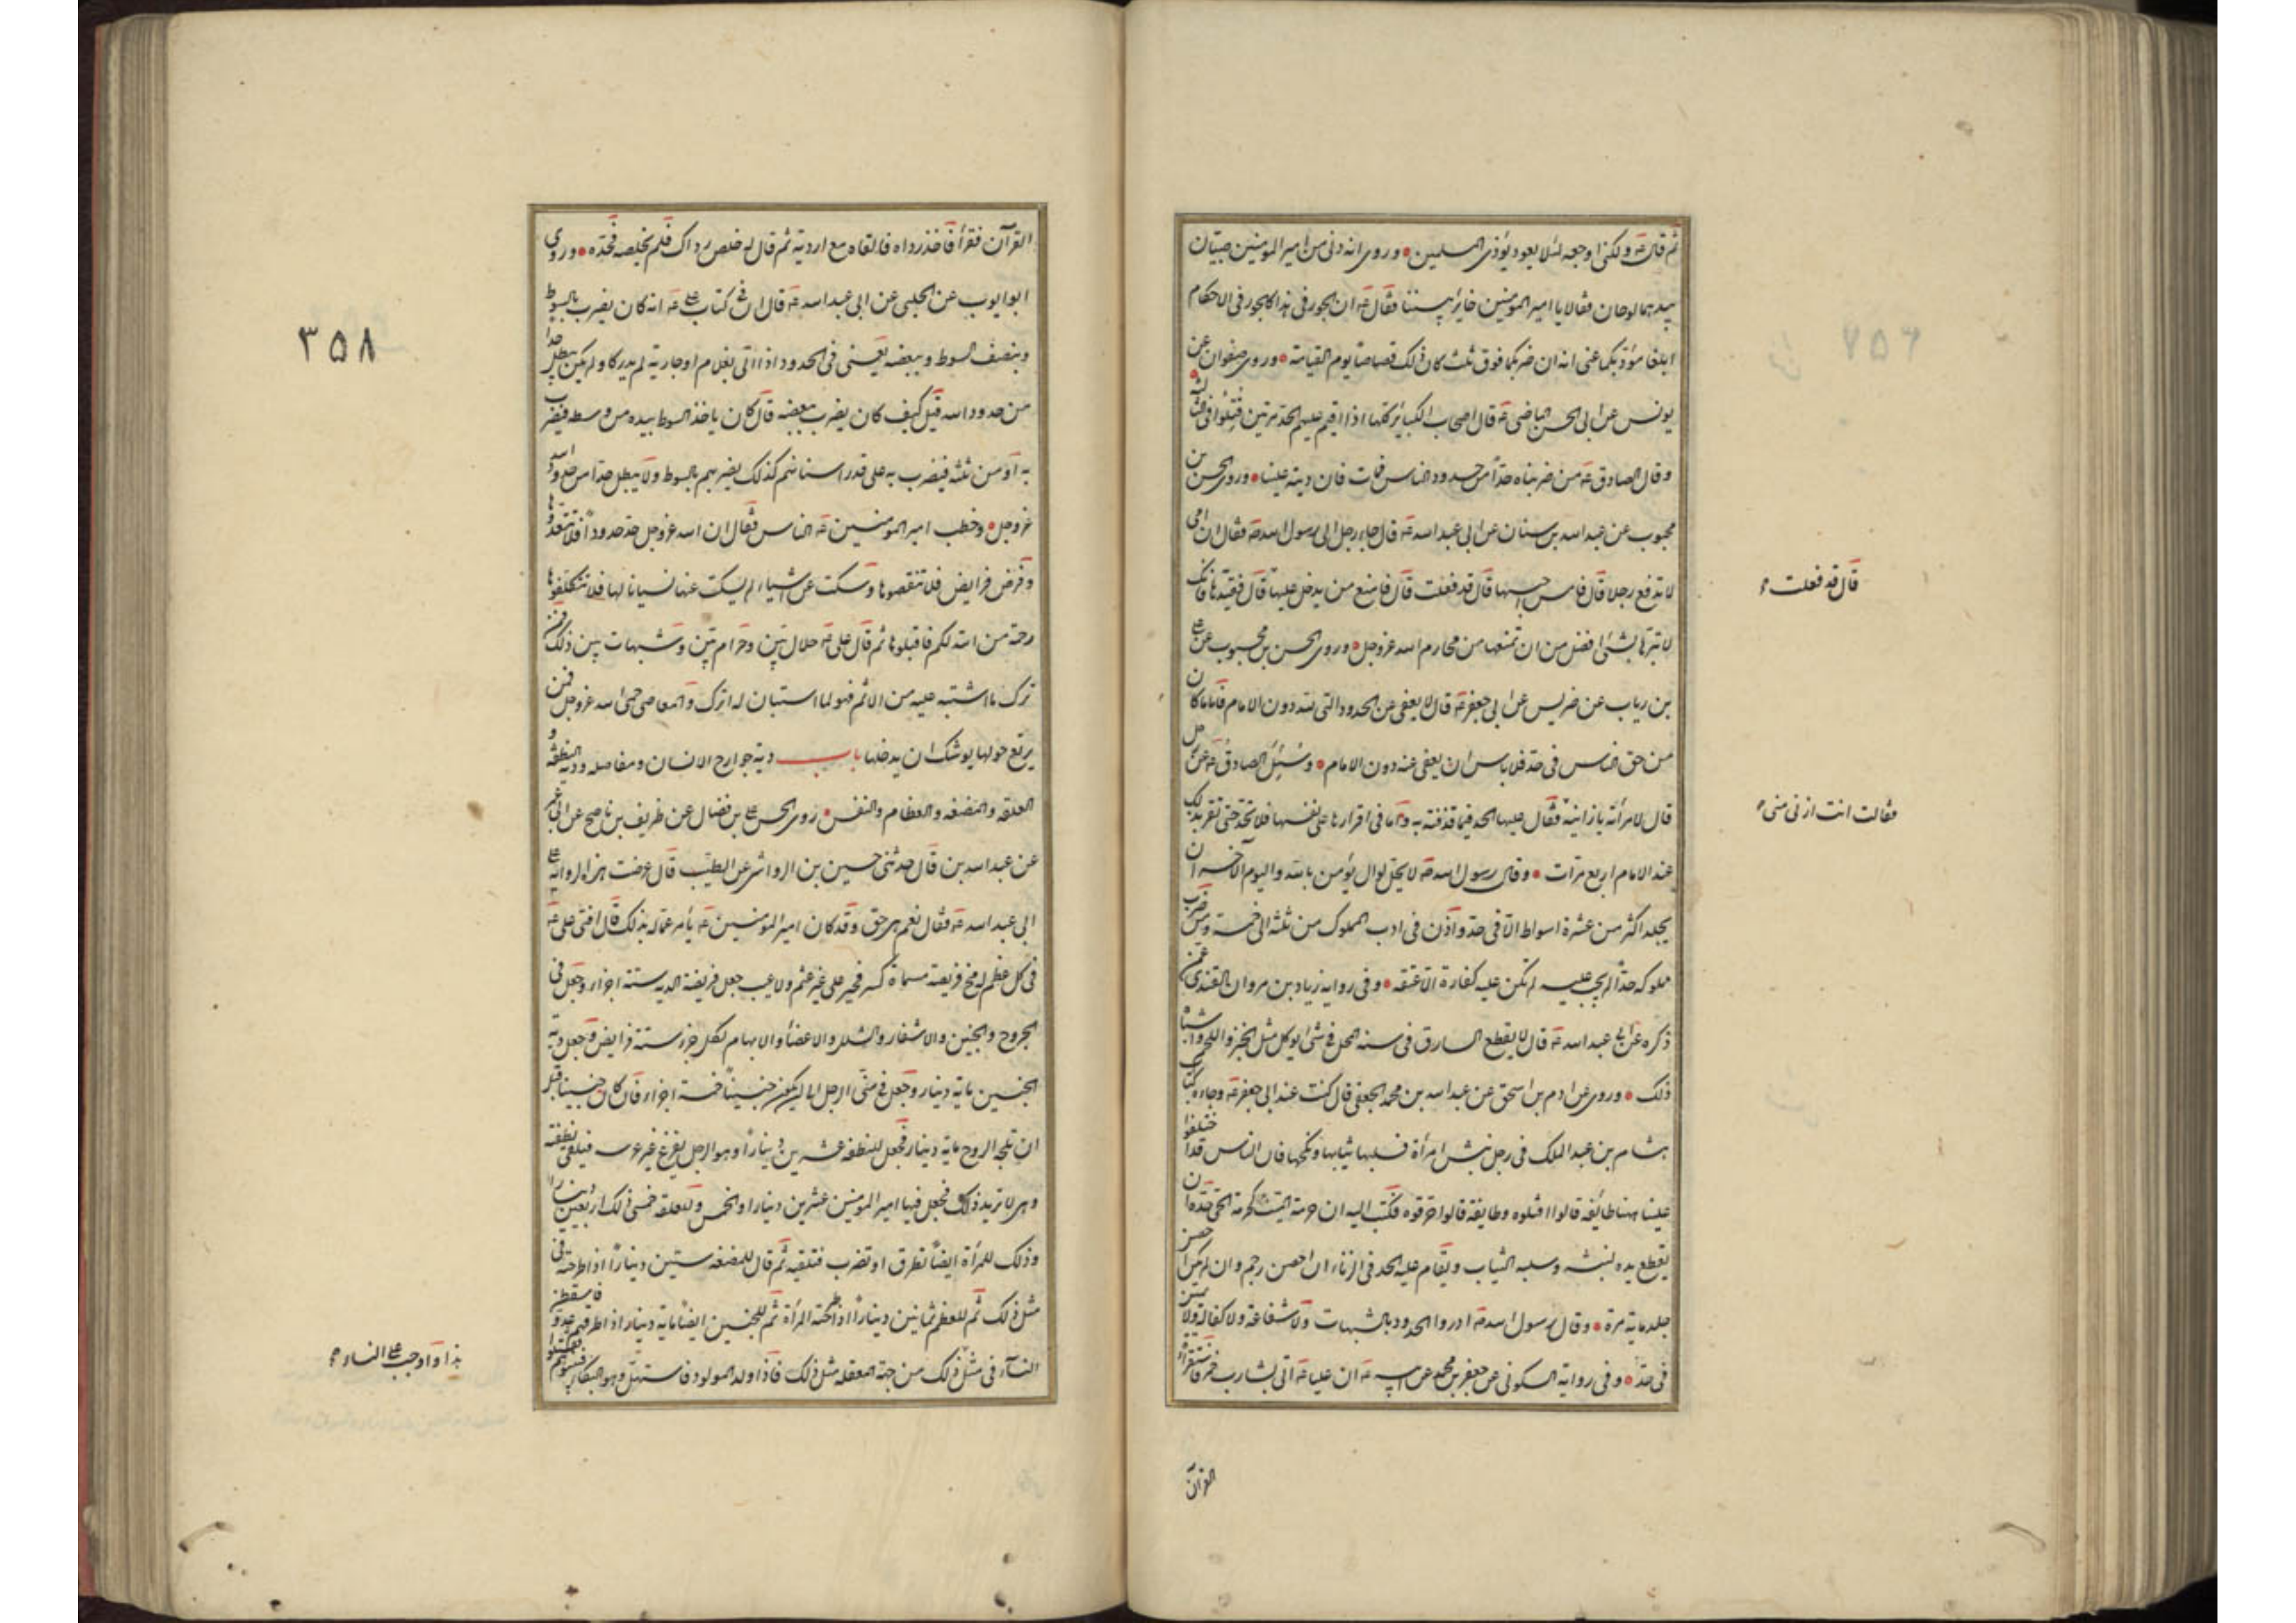 ثم قال ع ولكن اوجعه لئلا يعود يؤذى المسلمين وروى انه دنى من امير المومنين صبيان
بيدهما لوحان فقالا يا امير المومنين خاير بيننا فقال ع ان الجور فى هذا كالجور فى الاحكام
ابلغا مؤدبكما عنى انه ان ضربكما فوق ثلث كان ذلك قصاصا يوم القيامة وروى صفوان عن
يونس عن ابى الحسن الماضى ع قال اصحاب الكبائر كلها اذا اقيم عليهم الحد مرتين قتلوا فى الثالثة
وقال الصادق ع من ضربناه حدا من حدود الناس فمات فان ديته علينا وروى الحسن بن
محبوب عن عبد الله بن سنان عن ابى عبد الله ع قال جاء رجل الى رسول الله ص فقال ان امى
لا تدفع رجلا قال فاحبسها قال قد فعلت قال فامنع من يدخل عليها قال فقيدها فانك
لا تبرها بشئ افضل من ان تمنعها من محارم الله عز وجل وروى الحسن بن محبوب عن على
بن رياب عن ضريس عن ابى جعفر ع قال لا يعفى عن الحدود التى لله دون الامام فاما ما كان
من حق الناس فى حد فلا باس ان يعفى عنه دون الامام وسئل الصادق ع عن رجل
قال لامرأته يا زانية فقال عليها الحد فيما قذفته به واما فى اقرارها على نفسها فلا تحد حتى تقر بذلك
عند الامام اربع مرات وقال رسول الله ص لا يحل لوال يؤمن بالله واليوم الآخر ان
يجلد اكثر من عشرة اسواط الا فى حد واذن فى ادب المملوك من ثلثة الى خمسة ومن ضرب
مملوكه حدا لم يجب عليه لم تكن عليه كفارة الا عتقه وفى رواية زياد بن مروان القندى عمن
ذكره عن ابى عبد الله ع قال لا يقطع السارق فى سنة المحل فى شئ يوكل مثل الخبز واللحم واشباه
ذلك وروى عن ادم بن اسحق عن عبد الله بن محمد الجعفى قال كنت عند ابى جعفر ع وجاءه كتاب
هشام بن عبد الملك فى رجل نبش امرأة فسلبها ثيابها ونكحها فان الناس قد اختلفوا
علينا هنا طائفة قالوا اقتلوه وطايفة قالوا حرقوه فكتب اليه ان حرمة الميت كحرمة الحى حده ان
يقطع يده لنبشه وسلبه الثياب ويقام عليه الحد فى الزناء ان احصن رجم وان لم يكن احصن
جلد ماية مرة وقال رسول الله ص ادروا الحدود بالشبهات ولا شفاعة ولا كفالة ولا يمين
فى حد وفى رواية السكونى عن جعفر بن محمد عن ابيه ع ان عليا ع اتى بشارب خمر فاستقرأه
قال قد فعلت
فقالت انت ازنى منى
القرآن
القرآن فقرأ فاخذ رداه فالقاه مع اردية ثم قال له خلص رداك فلم يخلصه فحده وروى
ابو ايوب عن الحلبى عن ابى عبد الله ع قال ان فى كتاب على ع انه كان يضرب بالسوط
وبنصف السوط وببعضه يعنى فى الحدود اذا اتى بغلام او جارية لم يدركا ولم يكن يبطل حدا
من حدود الله قيل كيف كان يضرب ببعضه قال كان ياخذ السوط بيده من وسطه فيضرب
به او من ثلثه فيضرب به على قدر اسنانهم كذلك يضربهم بالسوط ولا يبطل حدا من حدود الله
عز وجل وخطب امير المومنين ع الناس فقال ان الله عز وجل حد حدودا فلا تتعدوها
وفرض فرايض فلا تنقصوها وسكت عن اشياء لم يسكت عنها نسيانا لها فلا تتكلفوها
رحمة من الله لكم فاقبلوها ثم قال على ع حلال بين وحرام بين وشبهات بين ذلك فمن
ترك ما اشتبه عليه من الاثم فهو لما استبان له اترك والمعاصى حمى الله عز وجل فمن
يرتع حولها يوشك ان يدخلها باب دية جوارح الانسان ومفاصله ودية النطفة و
العلقة والمضغة والعظام والنفس روى الحسن على بن فضال عن ظريف بن ناصح عن ابى
عن عبد الله بن قال حدثنى حسين بن الرواشى عن الطبيب قال عرضت هذه الرواية على
ابى عبد الله ع فقال نعم هى حق وقد كان امير المومنين ع يأمر عماله بذلك قال افتى على ع
فى كل عظم له مخ فريضة مسماة كسر فجبر على غير عثم ولا عيب جعل فريضة الدية ستة اجزاء وجعل فى
الجروح والجنين والاشفار والشلل والاعضاء والابهام لكل جزء ستة فرايض وجعل دية
الجنين ماية دينار وجعل فى منى الرجل الى ان يكون جنينا خمسة اجزاء فان كان جنينا قبل
ان تلجه الروح ماية دينار فجعل للنطفة عشرين دينارا وهو الرجل يفزع عن عرسه فيلقى نطفته
وهى لا تريد ذلك فجعل فيها امير المومنين عشرين دينارا والخمس وللعلقة خمسى ذلك اربعين دينارا
وذلك للمرأة ايضا تطرق او تضرب فتلقيه ثم قال للمضغة ستين دينارا اذا طرحته فى
مثل ذلك ثم للعظم ثمانين دينارا اذا طرحته المرأة ثم للجنين ايضا ماية دينار اذا طرقهم عدو فاسقطن
النساء فى مثل ذلك من جهة المعقلة مثل ذلك فاذا ولد المولود فاستهل وهو البكاء
هذا واوجب على النساء
٣٥٨